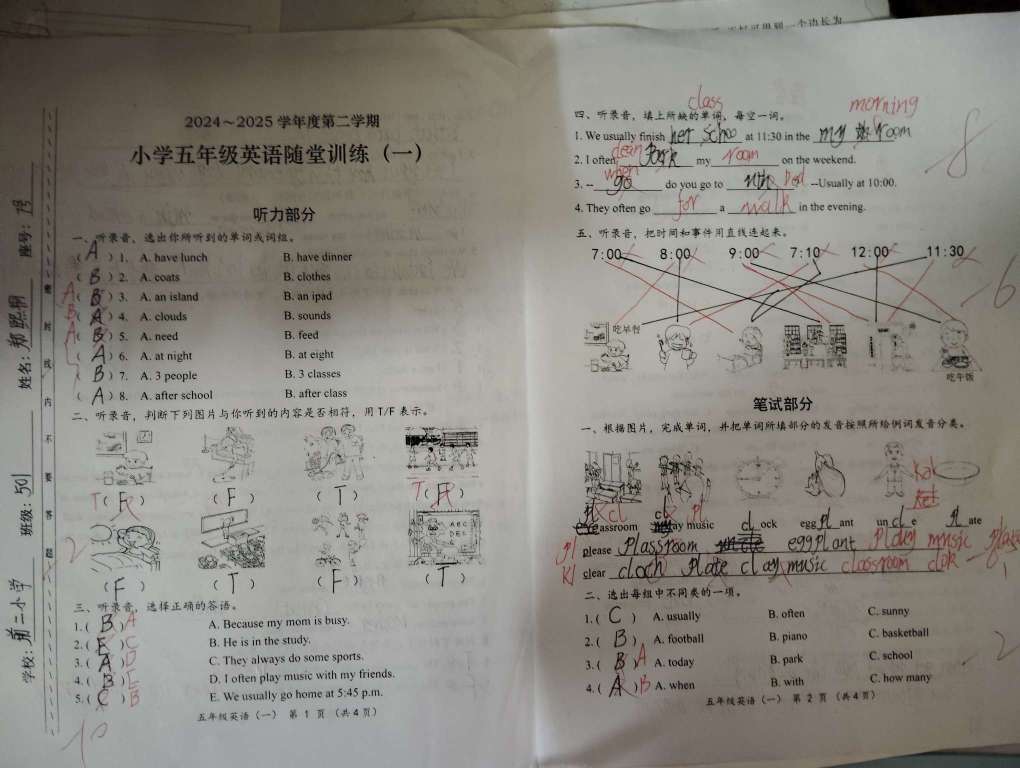 2024～2025 学年度第二学期
小学五年级英语随堂训练（一）
听力部分
一、听录音，选出你所听到的单词或词组。
( A ) 1. A. have lunch B. have dinner
( B ) 2. A. coats B. clothes
A ( B ) 3. A. an island B. an ipad
B ( A ) 4. A. clouds B. sounds
A ( B ) 5. A. need B. feed
( A ) 6. A. at night B. at eight
( B ) 7. A. 3 people B. 3 classes
( A ) 8. A. after school B. after class
二、听录音，判断下列图片与你听到的内容是否相符，用 T/F 表示。
T ( F ) ( F ) ( T ) T ( F )
( F ) ( T ) ( F ) ( T )
三、听录音，选择正确的答语。
1. ( B ) A A. Because my mom is busy.
2. ( E ) C B. He is in the study.
3. ( A ) D C. They always do some sports.
4. ( B ) E D. I often play music with my friends.
5. ( C ) B E. We usually go home at 5:45 p.m.
五年级英语（一） 第 1 页 （共 4 页）
学校: 班级: 501 姓名: 座号: 13
四、听录音，填上所缺的单词，每空一词。
class morning
1. We usually finish her schoo at 11:30 in the my room
clean
2. I often Park my room on the weekend.
when
3. -- go do you go to bed --Usually at 10:00.
4. They often go for a walk in the evening.
五、听录音，把时间和事件用直线连起来。
7:00 8:00 9:00 7:10 12:00 11:30
吃早餐
吃午饭
笔试部分
一、根据图片，完成单词，并把单词所填部分的发音按照所给例词发音分类。
pl cl cl pl
assroom ay music cl ock egg pl ant un cl e pl ate
pl please plassroom eggplant playy music plate
kl clear cloch plate clay music classroom clok
二、选出每组中不同类的一项。
1. ( C ) A. usually B. often C. sunny
2. ( B ) A. football B. piano C. basketball
3. ( B ) A A. today B. park C. school
4. ( A ) B A. when B. with C. how many
五年级英语（一） 第 2 页 （共 4 页）